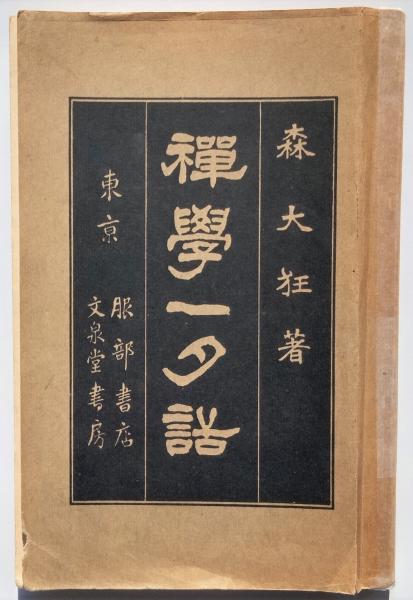 森大狂著
禪學一夕話
東京
服部書店
文泉堂書房